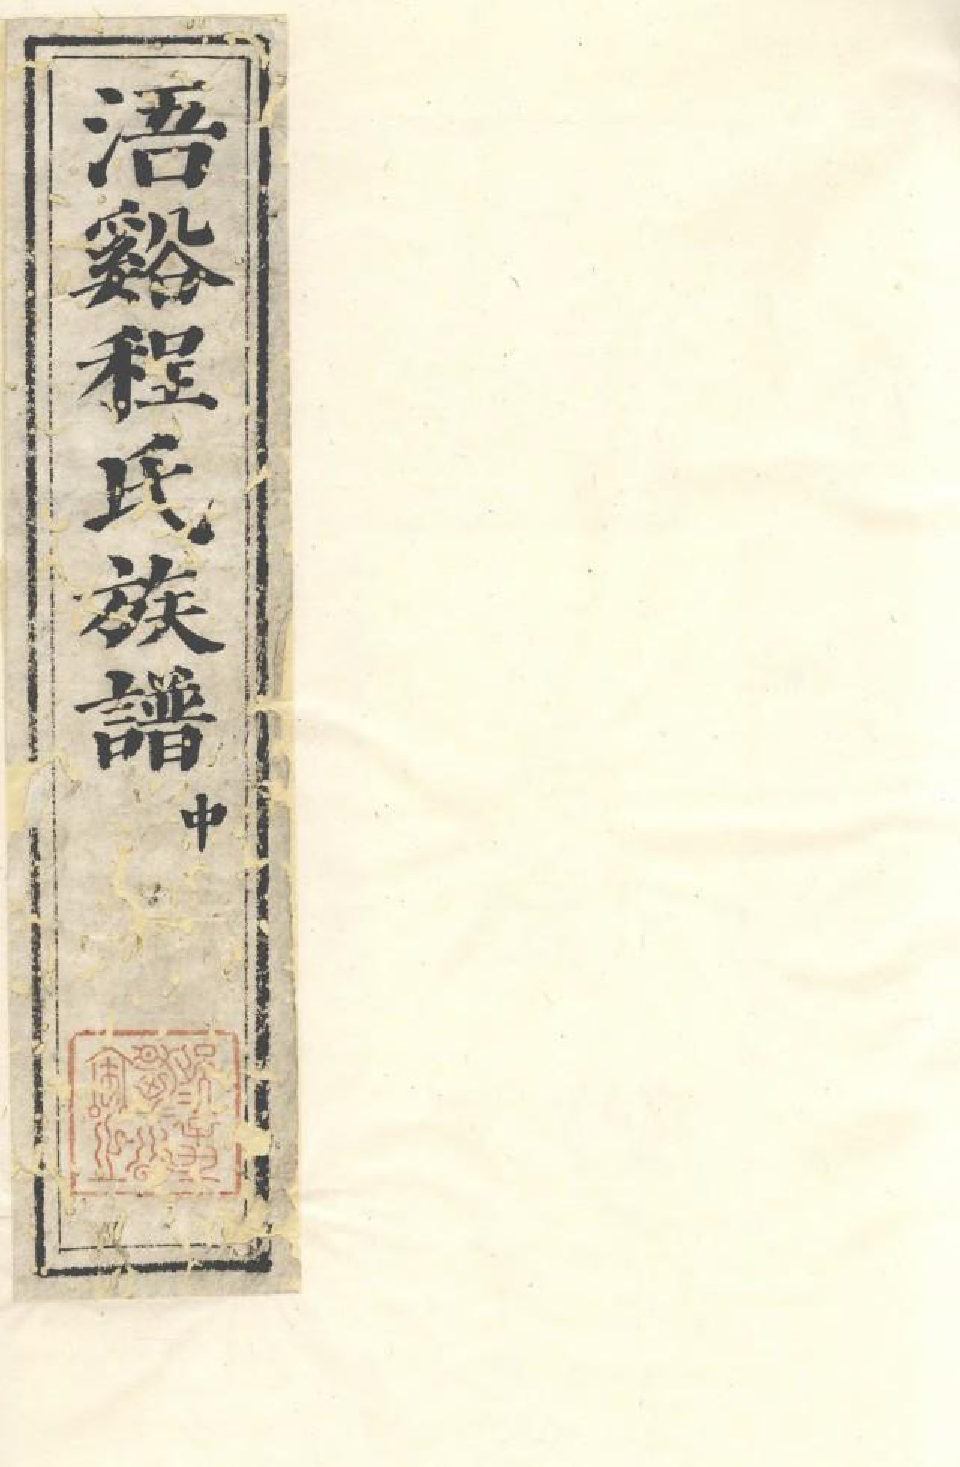 浯谿程氏族譜
中